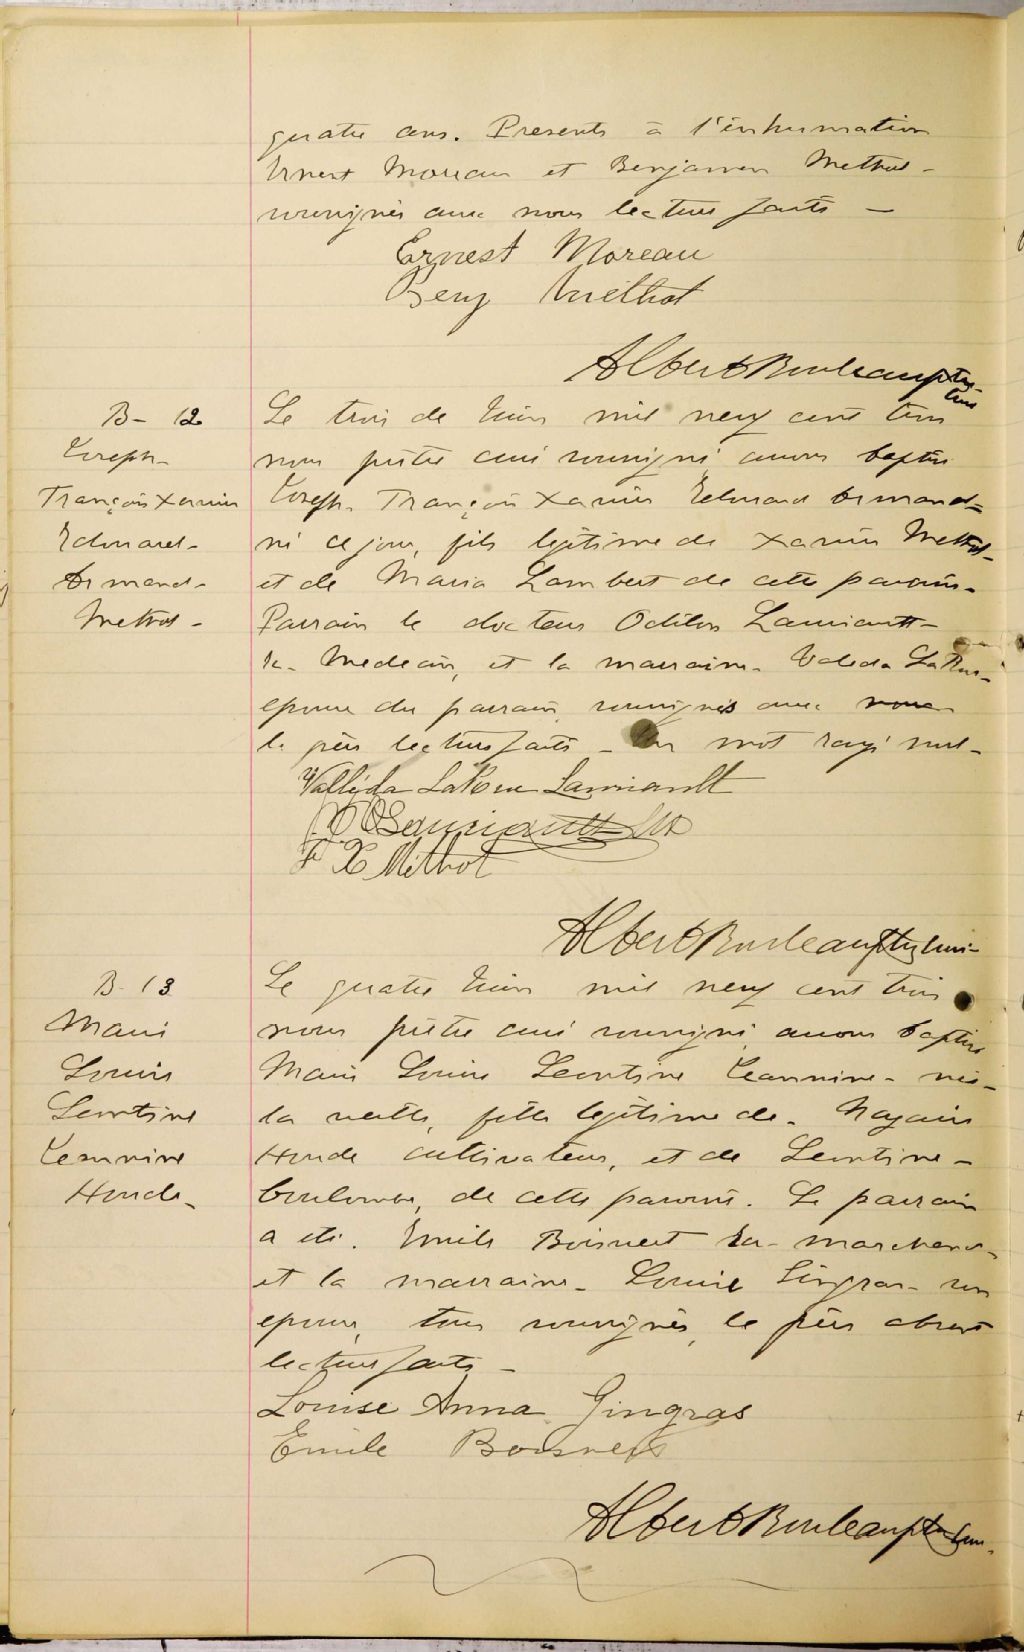 quatre ans. Presents à l'inhumation
Ernest Moreau et Benjamin Methot -
soussignés avec nous lecture faite -
Ernest Moreau
Benj Methot
Albert Ptre
curé
B- 12
Le trois de Juin mil neuf cent trois
Joseph-
nous prêtre curé soussigné, avons baptisé
François Xavier
Joseph- François Xavier Edouard Armand-
Edouard-
né ce jour, fils légitime de Xavier Methot-
Armand-
et de Maria Lambert de cette paroisse-
Methot -
Parrain le docteur Odilon Lauriault-
Medecin, et la marraine- Valeda LaRue-
epouse du parrain, soussignés avec nous
le père lecture faite - Un mot rayé nul-
Vallyda LaRue Lauriault
Lauriault MD
F X Methot
Albert Ptre curé-
B- 13
Le quatre Juin mil neuf cent trois
Marie
nous prêtre curé soussigné, avons baptisé
Louise
Marie Louise Leontine Jeannine- née-
Leontine
la veille, fille légitime de- Nazaire
Jeannine
Houde cultivateur, et de Leontine-
Houde-
Coulombe, de cette paroisse. Le parrain
a été. Emile Boisvert marchand-
et la marraine- Louise Gingras- son
epouse, tous soussignés, le père absent
lecture faite-
Louise Anna Gingras
Emile Boisvert
Albert Ptre curé-